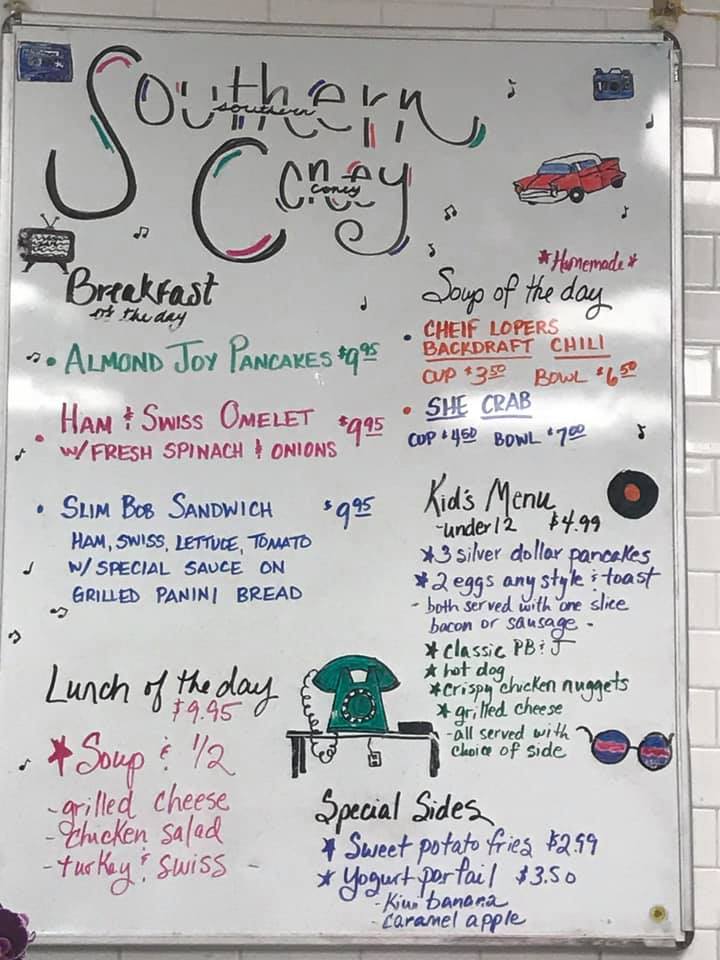 Southern
southern
Coney
coney
Breakfast
of the day
• ALMOND JOY PANCAKES $9.95
• HAM & SWISS OMELET $9.95
W/FRESH SPINACH & ONIONS
• SLIM BOB SANDWICH $9.95
HAM, SWISS, LETTUCE, TOMATO
W/ SPECIAL SAUCE ON
GRILLED PANINI BREAD
Lunch of the day
$9.95
★ Soup & 1/2
- grilled cheese
- chicken salad
- turkey & swiss
*Homemade*
Soup of the day
• CHEIF LOPERS
BACKDRAFT CHILI
CUP $3.50 BOWL $6.50
• SHE CRAB
CUP $4.50 BOWL $7.00
Kid's Menu
-under 12 $4.99
*3 silver dollar pancakes
*2 eggs any style & toast
- both served with one slice
bacon or sausage -
* classic PB & J
* hot dog
*crispy chicken nuggets
* grilled cheese
-all served with
choice of side
Special Sides
* Sweet potato fries $2.99
* Yogurt parfait $3.50
- Kiwi banana
- caramel apple